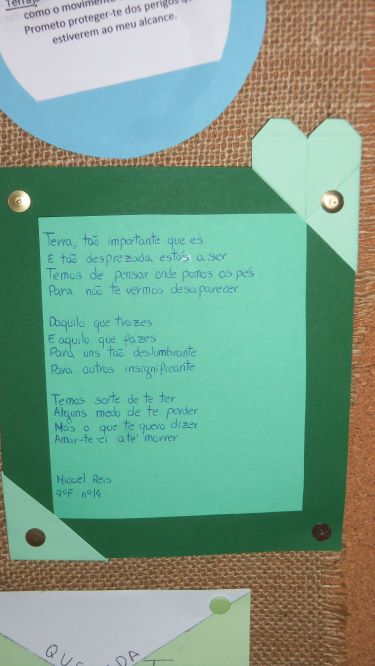 Terra,
como o movimento
Prometo proteger-te dos perigos q
estiverem ao meu alcance.
Terra, tão importante que és
E tão desprezada estás a ser
Temos de pensar onde pomos os pés
Para não te vermos desaparecer
Daquilo que trazes
E aquilo que fazes
Para uns tão deslumbrante
Para outros insignificante
Temos sorte de te ter
Alguns medo de te perder
Mas o que te quero dizer
Amar-te-ei até morrer
Miguel Reis
9ºF nº14